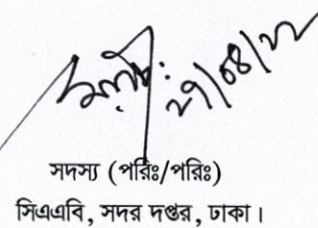 ২১/০৪/২২
সদস্য (পরিঃ/পরিঃ)
সিএএবি, সদর দপ্তর, ঢাকা।